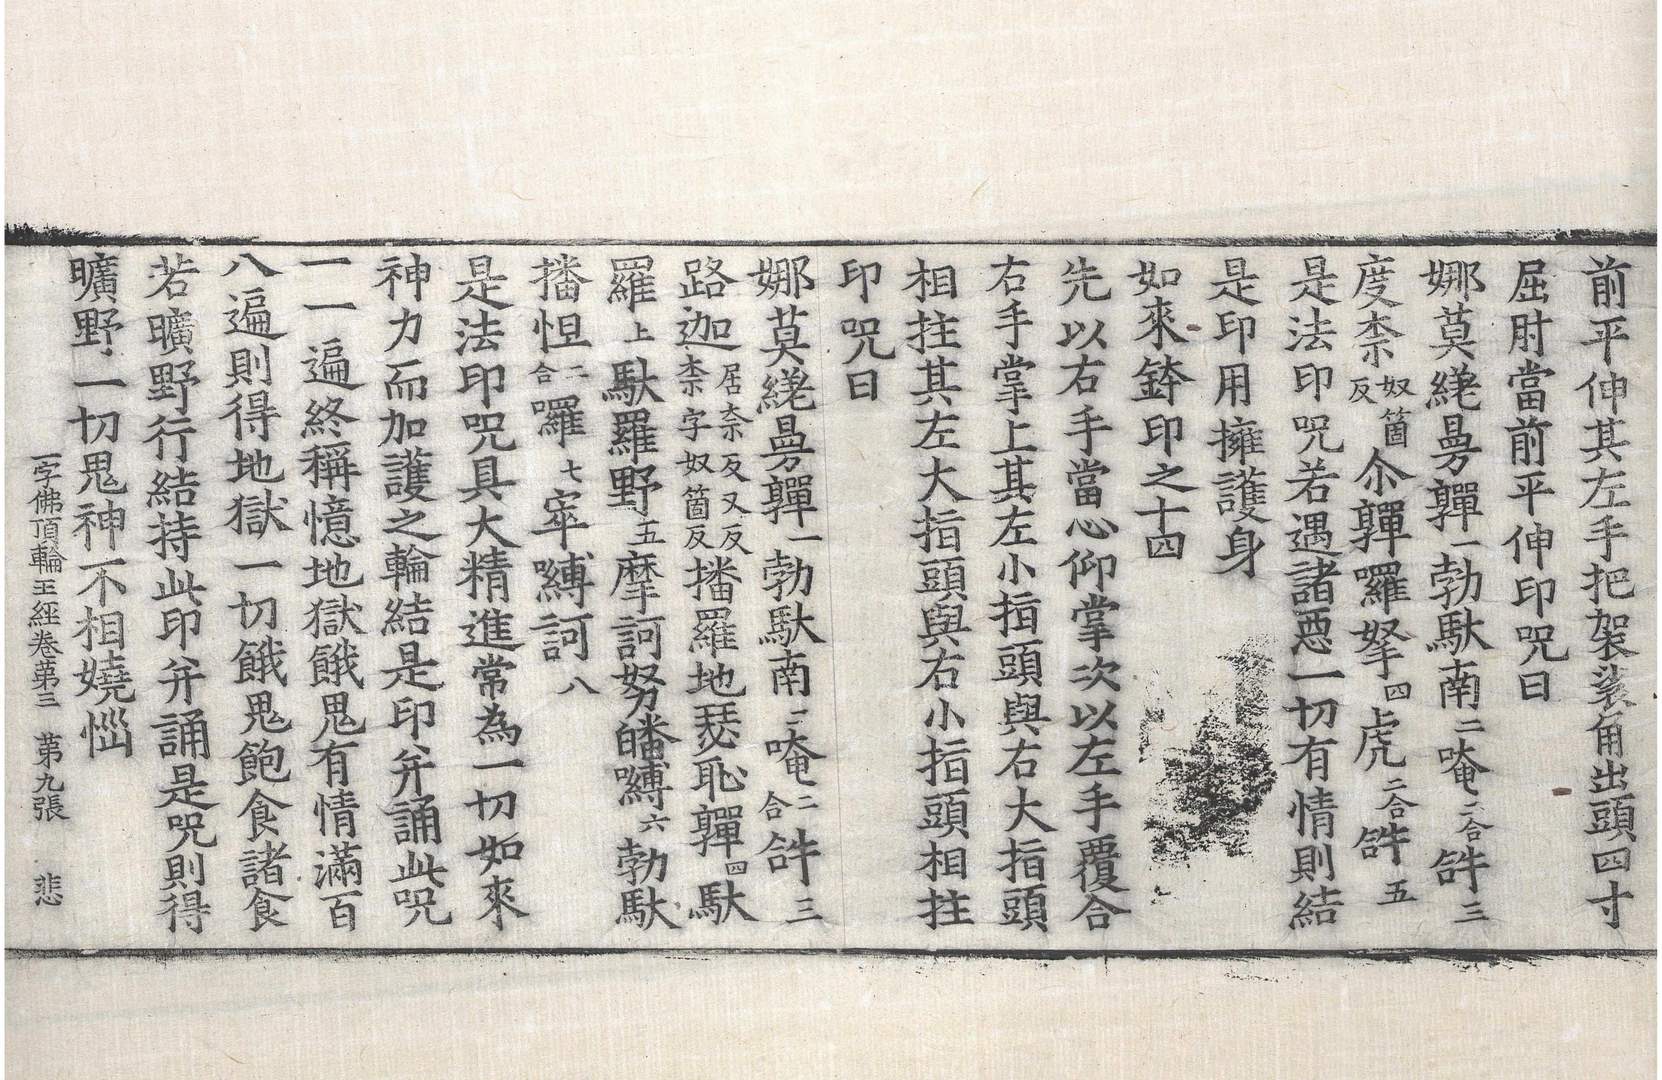 前平伸其左手把袈裟角出頭四寸
屈肘當前平伸印咒曰
娜莫繞曼嚲一勃馱南二唵二合𤙖三
度柰奴箇反尒嚲囉拏四虎二合𤙖五
是法印咒若遇諸惡一切有情則結
是印用擁護身
如來鉢印之十四
先以右手當心仰掌次以左手覆合
右手掌上其左小指頭與右大指頭
相拄其左大指頭與右小指頭相拄
印咒曰
娜莫繞曼嚲一勃馱南二唵二合𤙖三
路迦居柰反又反柰字奴箇反播羅地瑟恥嚲四馱
羅上馱羅野五摩訶努皤嚩六勃馱
播怛二合囉七窣嚩訶八
是法印咒具大精進常為一切如來
神力而加護之輪結是印并誦此咒
一一遍終稱憶地獄餓鬼有情滿百
八遍則得地獄一切餓鬼飽食諸食
若曠野行結持此印并誦是咒則得
曠野一切鬼神不相嬈惱
一字佛頂輪王經卷第三　第九張　悲